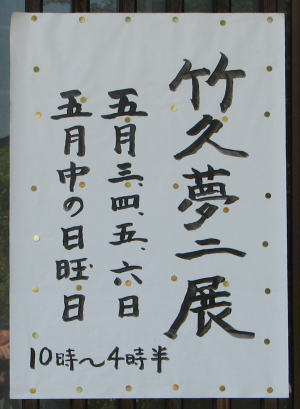 竹久夢二展
五月三、四、五、六日
五月中の日曜日
10時～4時半